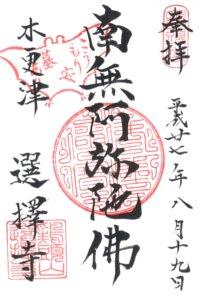 奉拝
平成廿七年八月十九日
南無阿弥陀佛
木更津
選擇寺